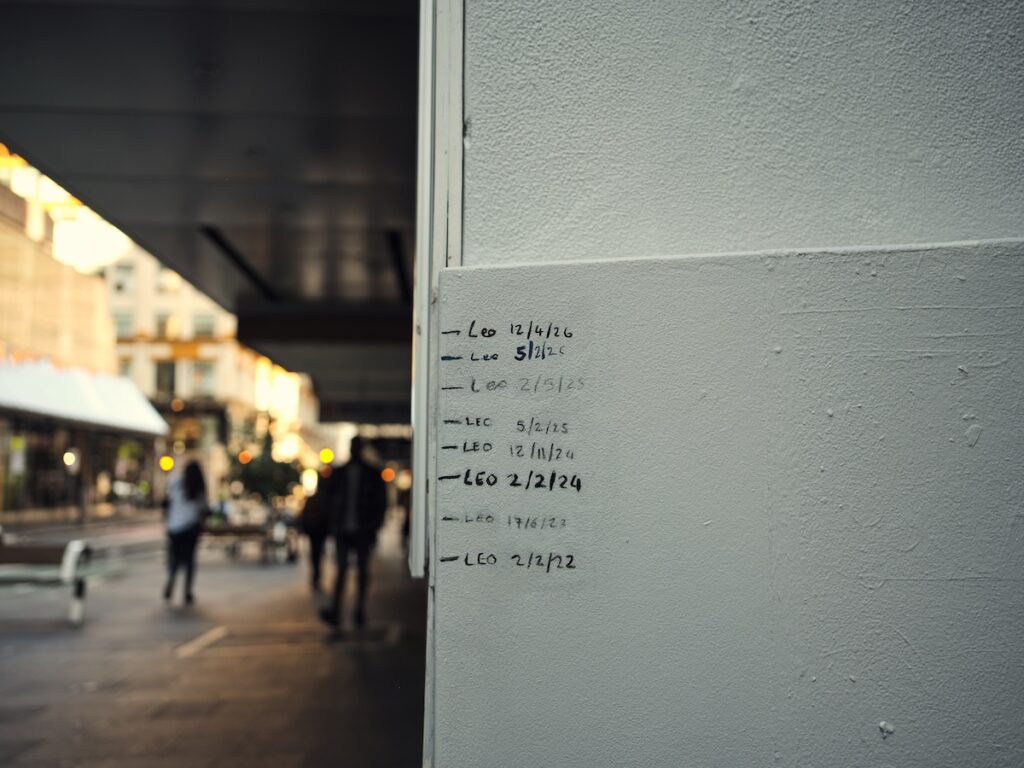 Leo 12/4/26
Leo 5/2/26
Leo 2/5/25
LEO 5/2/25
LEO 12/11/24
LEO 2/2/24
LEO 17/6/23
LEO 2/2/22